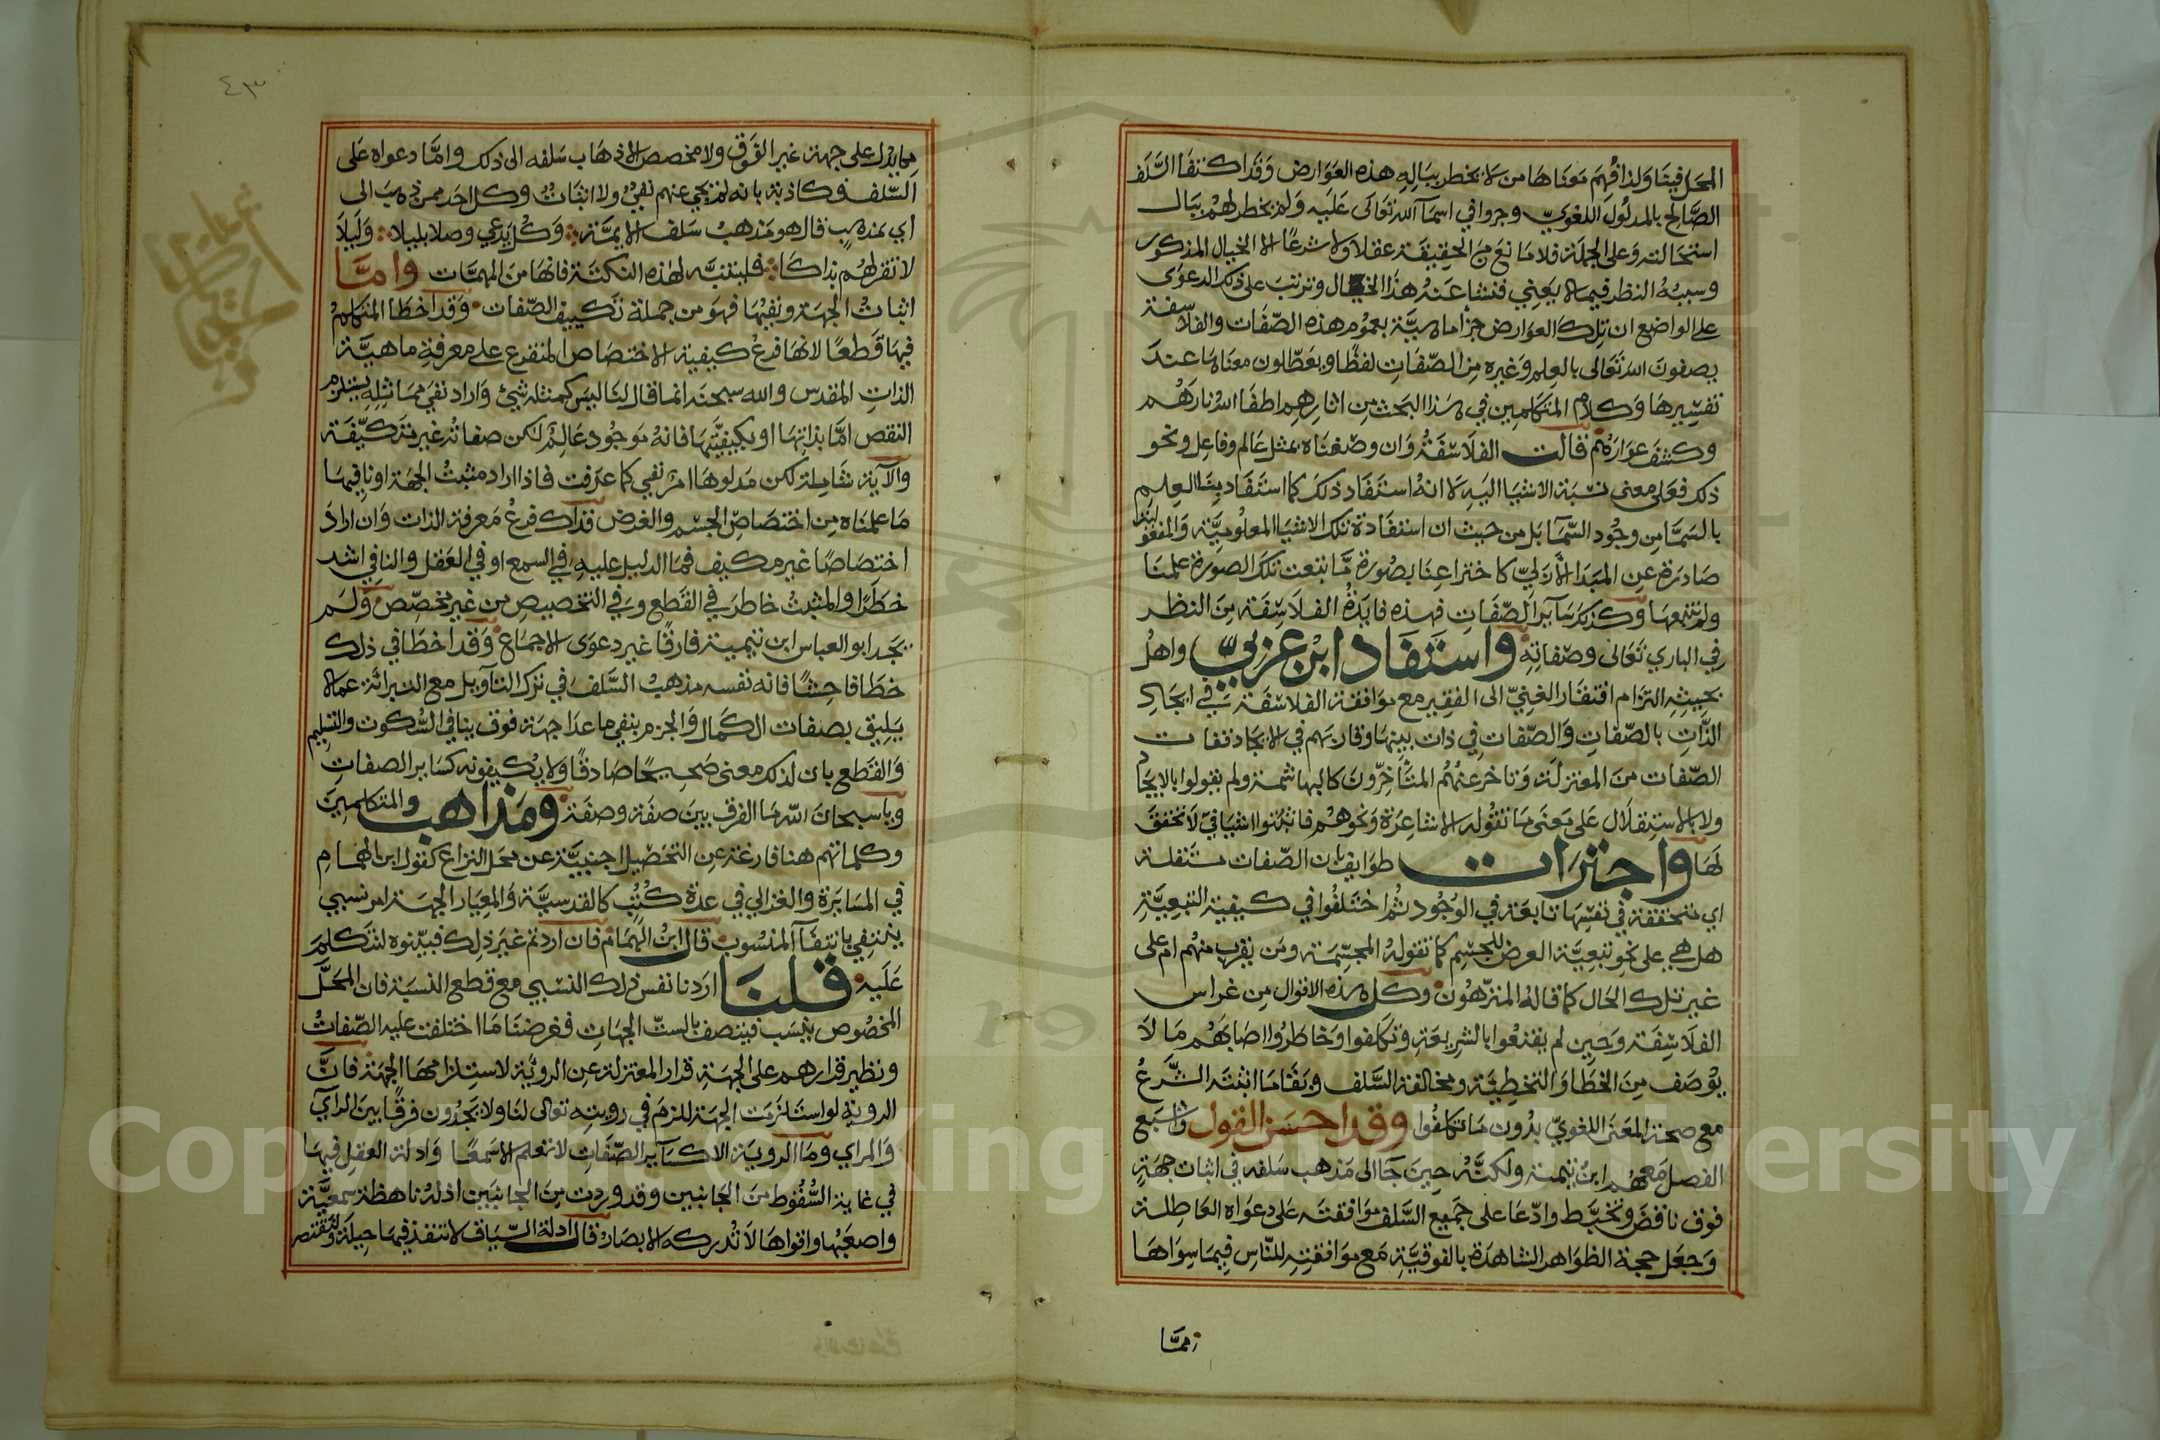 المحل فينا ولذا فهم معناها من لا يخطر بباله هذه العوارض وقد اكتفا السلف
الصالح بالمدلول اللغوي وجروا في اسمآ الله تعالى عليه ولم يخطر لهم ببال
استحالته وعلى الجملة فلا مانع من الحقيقة عقلا ولا شرعًا الا الخيال المذكور
وسببه النظر فيما لا يعني فنشا عنه هذا الخيال وترتب على ذلك الدعوى
على الواضع ان تلك العوارض جزأ ماهية بعموم هذه الصفات والفلاسفة
يصفون الله تعالى بالعلم وغيره من الصفات لفظًا ويعطلون معناها عند
تفسيرها وكلام المتكلمين في هذا البحث من اثارهم اطفا الله نارهم
وكشف عوارهم قالت الفلاسفة وان وصفناه بمثل عالم وفاعل ونحو
ذلك فعلى معنى نسبة الاشيا اليه لا انه استفاد ذلك كما استفاد بنا العلم
بالسما من وجود السمآ بل من حيث ان استفادة تلك الاشيا المعلومية والمفعولية
صادرة عن المبدا الأزلي كاختراعنا بصورة ما تتبعت تلك الصورة علمنا
ولم نتبعها وكذلك سآير الصفات فهذه فايدة الفلاسفة من النظر
في الباري تعالى وصفاته واستفاد ابن عربي واهل
نحيثه التزام افتقار الغني الى الفقير مع موافقة الفلاسفة في ايجاد
الذات بالصفات والصفات في ذات بينها وقاربهم في الايجاد نفات
الصفات من المعتزلة وتاخر عنهم المتأخرون كالبهاشمة ولم يقولوا بالايجاد
ولا بالاستقلال على معنى ما تقوله الاشاعرة ونحوهم فاثبتوا اشيا في لا تحقق
لها واجترات طوايف بان الصفات مستقلة
اي متحققة في نفسها تابعة في الوجود ثم اختلفوا في كيفية التبعية
هل هي على نحو تبعية العرض للجسم كما تقوله المجسمة ومن يقرب منهم ام على
غير تلك الحال كما قاله المنزهون وكل هذه الاقوال من غراس
الفلاسفة وحين لم يقنعوا بالشريعة وتكلفوا وخاطروا اصابهم ما لا
يوصف من الخطا والتخطية ومخالفة السلف ونفا ما اثبته الشرع
مع صحة المعنى اللغوي بدون ما تكلفوا وقد احسن القول واشبع
الفصل معهم ابن تيمية ولكنه حين جآ الى مذهب سلفه في اثبات جهة
فوق ناقض وتخبط وادعا على جميع السلف موافقته على دعواه العاطلة
وجعل حجة الظواهر الشاهدة بالفوقية مع موافقته للناس فيما سواها
مما
٤٣
مما يدل على جهة غير الفوق ولا مخصص الا ذهاب سلفه الى ذلك واما دعواه على
السلف فكاذبة بانه لم يجي عنهم نفي ولا اثبات وكل احد ممن ذهب الى
اي مذهب قال هو مذهب سلف الايمة وكل يدعي وصلا بليلا وليلا
لا تقر لهم بذاكا فليتنبه لهذه النكتة فانها من المهمات واما
اثبات الجهة ونفيها فهو من جملة تكييف الصفات وقد اخطا المتكلم
فيها قطعًا لانها فرع كيفية الاختصاص المتفرع على معرفة ماهية
الذات المقدس والله سبحنه انما قال لنا ليس كمثله شيئ واراد نفي مماثله يستلزم
النقص اما بذاتها او بكيفيتها فانه موجود عالم لكن صفاته غير متكيفة
والآية شاملة لكن مدلولها امر نفي كما عرفت فاذا اراد مثبت الجهة او نافيها
ما علمناه من اختصاص الجسم والعرض فذاك فرع معرفة الذات وان اراد
اختصاصًا غير مكيف فما الدليل عليه في السمع او في العقل والنافي اشد
خطرًا والمثبت خاطر في القطع وفي التخصيص من غير مخصص ولم
يجد ابو العباس ابن تيمية فارقًا غير دعوى الاجماع وقد اخطا في ذلك
خطا فاحشًا فانه نفسه مذهب السلف في ترك التاويل مع التبرائة عما لا
يليق بصفات الكمال والجزم بنفي ما عدا جهة فوق ينافي السكوت والتسليم
والقطع بان لذلك معنى صحيحًا صادقًا ولا يكيفونه كساير الصفات
ويا سبحان الله ما الفرق بين صفة وصفة ومذاهب المتكلمين
وكلماتهم هنا فارغة عن التحصيل اجنبية عن محل النزاع كقول ابن الهمام
في المسايرة والغزالي في عدة كتب كالقدسية والمعيار الجهة امر نسبي
ينتفي بانتفآ المنسوب قال ابن الهمام فان اردتم غير ذلك فبينوه لنتكلم
عليه قلنا اردنا نفس ذلك النسبي مع قطع النسبة فان المحل
المخصوص ينسب فيتصف بالست الجهات فغرضنا ما اختلفت عليه الصفات
ونظير قرارهم على الجهة قرار المعتزلة عن الروية لاستلزامها الجهة فان
الروية لو استلزمت الجهة للزم في رويته تعالى لنا ولا يجدون فرقًا بين الرآي
والمراي وما الروية الا كسآير الصفات لا تعلم الا سمعًا وادلة العقل فيها
في غاية السقوط من الجانبين وقد وردت من الجانبين ادلة ناهظة سمعية
واصعبها واقواها لا تدركه الابصار قال ادلة السياق لا تنفذ فيها حيلة ولنقتصر